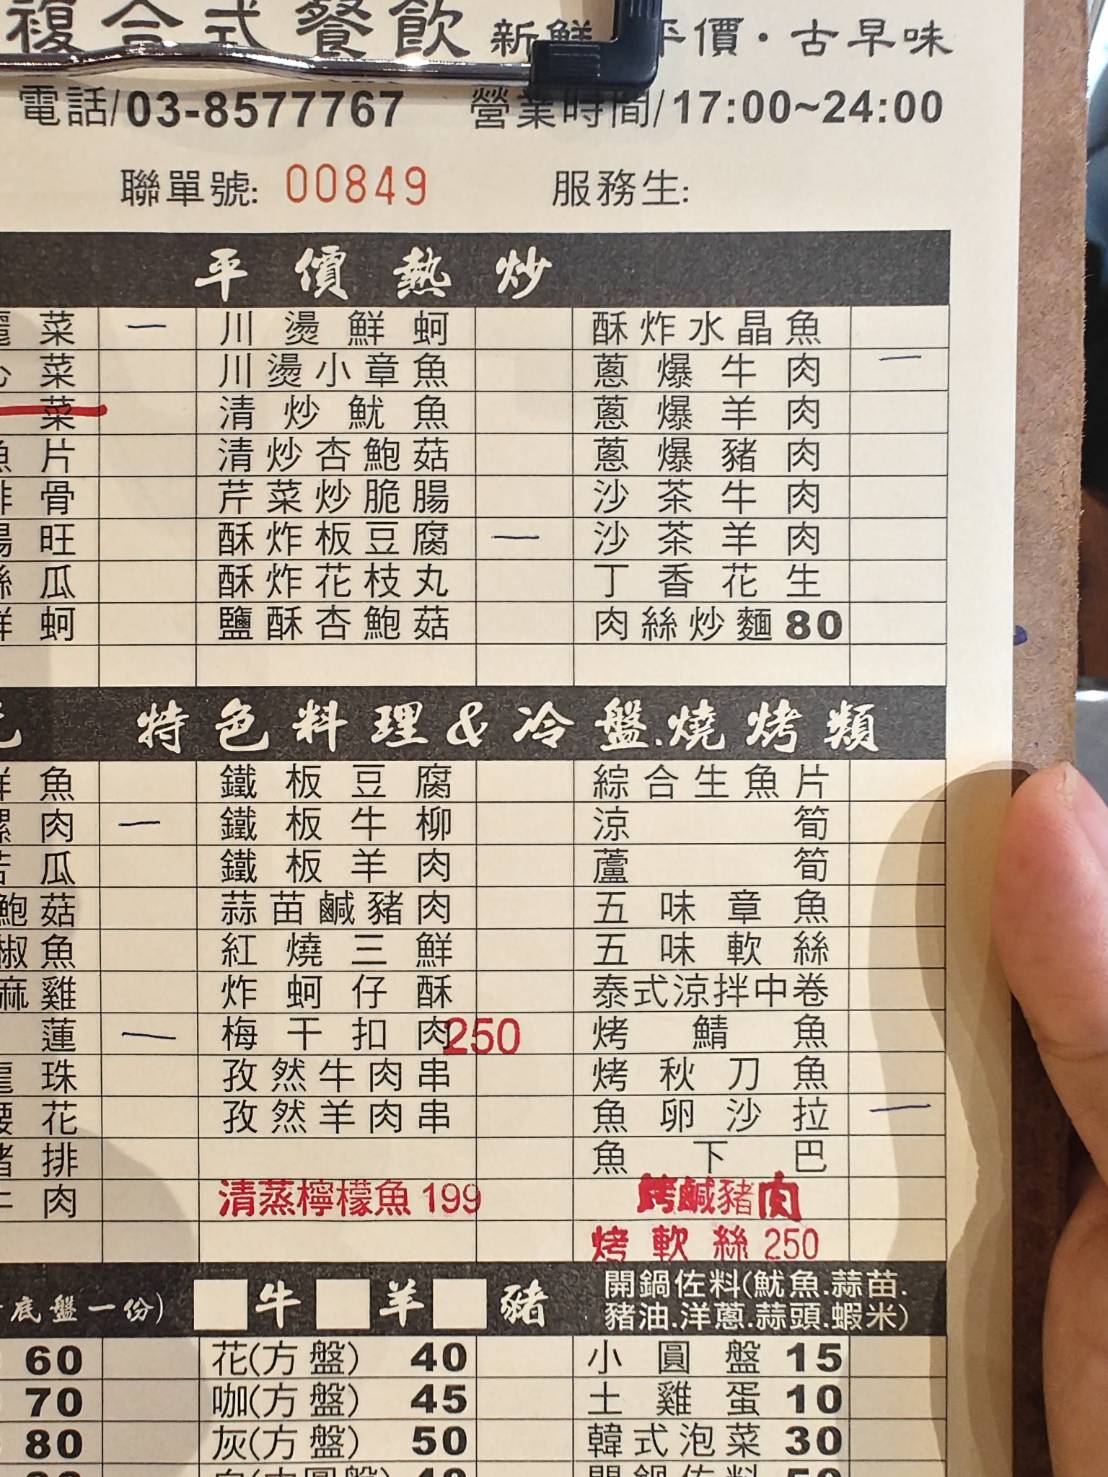 複合式餐飲 新鮮 平價·古早味
電話/03-8577767 營業時間/17:00~24:00
聯單號: 00849 服務生:
平價熱炒
菜 一 川燙鮮蚵 酥炸水晶魚
菜 川燙小章魚 蔥爆牛肉 一
菜 清炒魷魚 蔥爆羊肉
片 清炒杏鮑菇 蔥爆豬肉
骨 芹菜炒脆腸 沙茶牛肉
旺 酥炸板豆腐 一 沙茶羊肉
瓜 酥炸花枝丸 丁香花生
蚵 鹽酥杏鮑菇 肉絲炒麵80
特色料理&冷盤.燒烤類
魚 鐵板豆腐 綜合生魚片
肉 一 鐵板牛柳 涼筍
瓜 鐵板羊肉 蘆筍
鮑菇 蒜苗鹹豬肉 五味章魚
椒魚 紅燒三鮮 五味軟絲
麻雞 炸蚵仔酥 泰式涼拌中卷
蓮 一 梅干扣肉250 烤鯖魚
珠 孜然牛肉串 烤秋刀魚
花 孜然羊肉串 魚卵沙拉 一
排 魚下巴
肉 清蒸檸檬魚199 烤鹹豬肉
烤軟絲250
底盤一份) 牛 羊 豬 開鍋佐料(魷魚.蒜苗.
豬油.洋蔥.蒜頭.蝦米)
60 花(方盤) 40 小圓盤15
70 咖(方盤) 45 土雞蛋10
80 灰(方盤) 50 韓式泡菜30